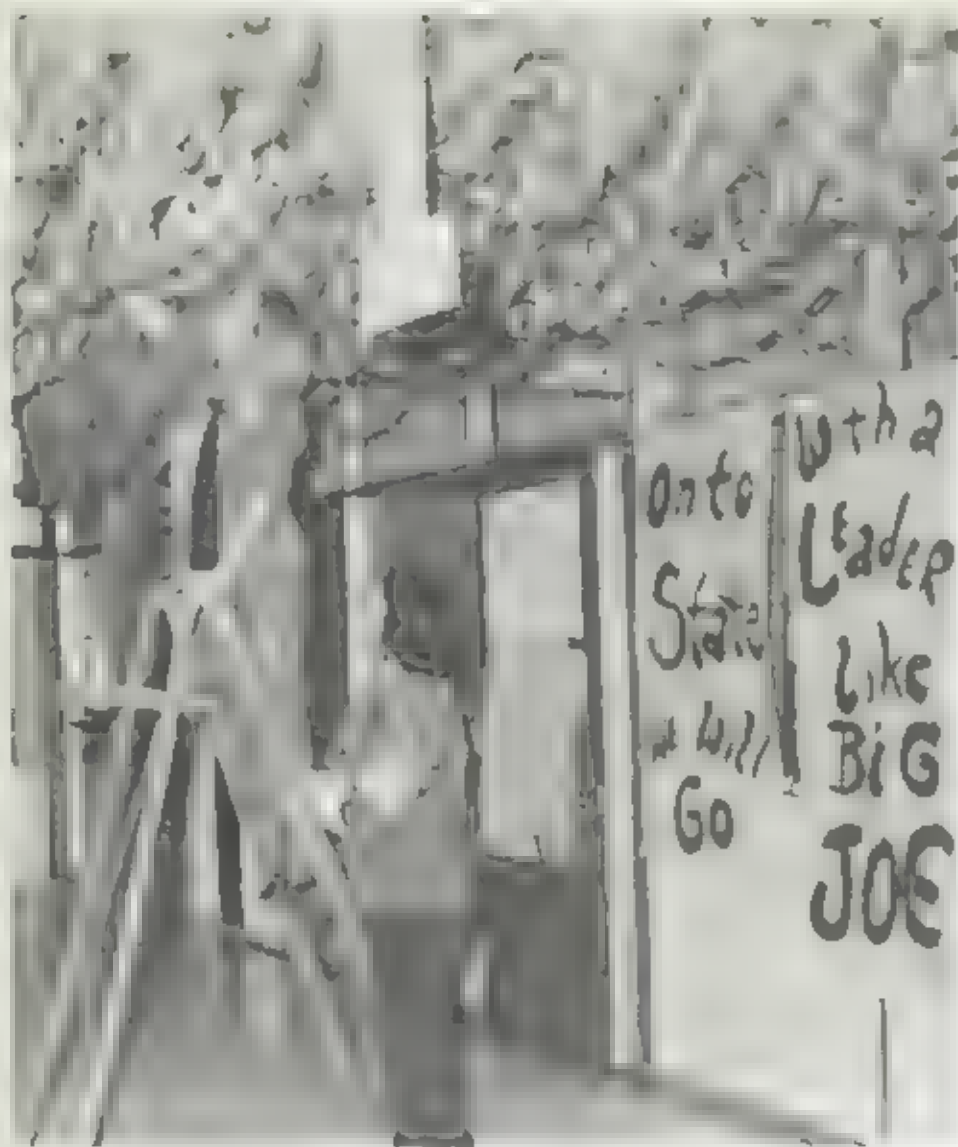 onto
State
w will
Go
with a
LEadER
like
BiG
JOE